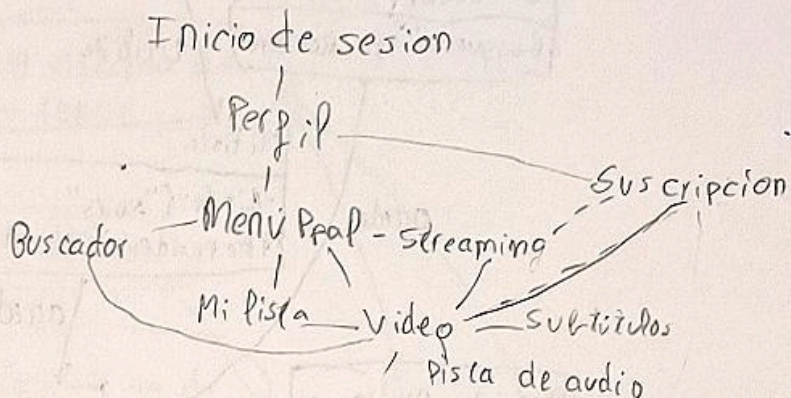 Inicio de sesion
Perfil
Suscripcion
Buscador
Menú Ppal
Streaming
Mi lista
Video
Subtitulos
Pista de audio